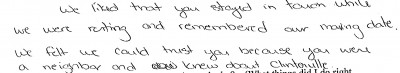 We liked that you stayed in touch while
we were renting and remembered our moving date.
We felt we could trust you because you were
a neighbor and knew about Clintonville.
What things did I do right